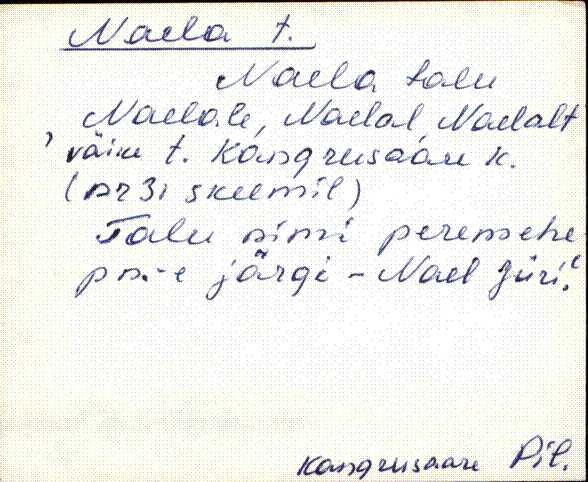 Naela t.
Naela talu
Naelale, Naelal, Naelalt
väike t. Kangrusaare k.
(nr 31 skeemil)
Talu nimi peremehe
pn-e järgi - Nael Jüri.
Kangrusaare Pil.